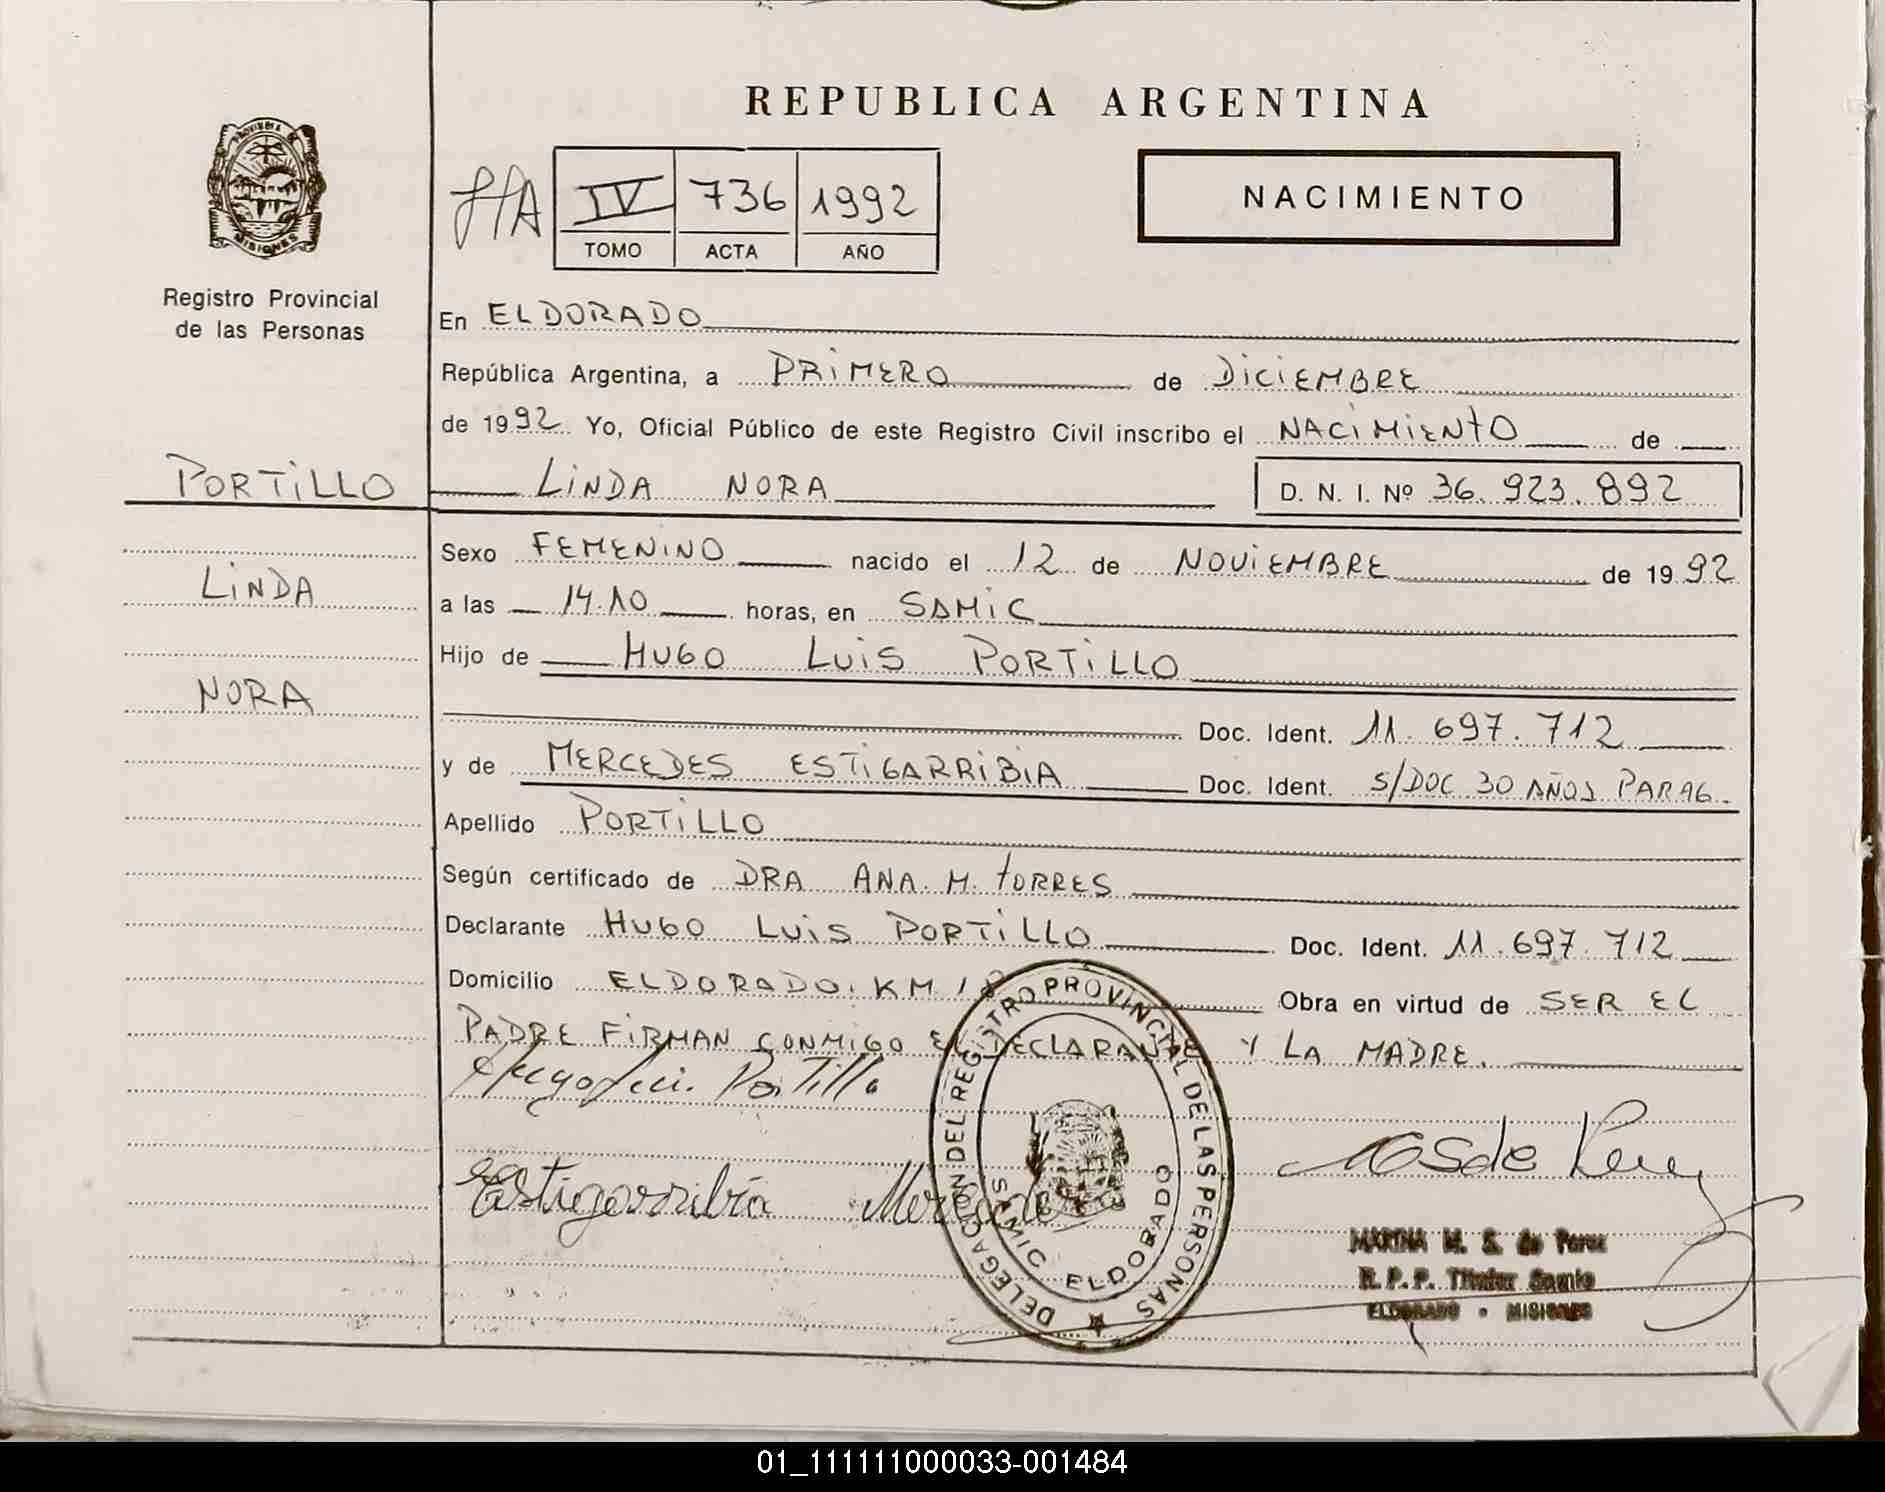 REPUBLICA ARGENTINA
PROVINCIA DE
MISIONES
Registro Provincial
de las Personas
IV 736 1992
TOMO ACTA AÑO
NACIMIENTO
En ELDORADO
República Argentina, a PRIMERO de DICIEMBRE
de 1992 Yo, Oficial Público de este Registro Civil inscribo el NACIMIENTO de
PORTILLO
LINDA NORA D. N. I. Nº 36.923.892
Sexo FEMENINO nacido el 12 de NOVIEMBRE de 1992
LINDA
a las 14.10 horas, en SAMIC
Hijo de HUGO LUIS PORTILLO
NORA
Doc. Ident. 11.697.712
y de MERCEDES ESTIGARRIBIA Doc. Ident. S/DOC 30 AÑOS PARAG.
Apellido PORTILLO
Según certificado de DRA ANA. M. TORRES
Declarante HUGO LUIS PORTILLO Doc. Ident. 11.697.712
Domicilio ELDORADO. KM 18 Obra en virtud de SER EL
PADRE FIRMAN CONMIGO EL DECLARANTE Y LA MADRE.
Hugo Luis Portillo
Estigarribia Mercedes
DELEGACION DEL REGISTRO PROVINCIAL DE LAS PERSONAS
SAMIC ELDORADO
MARINA M. S. de Perez
R.P.P. Titular Samic
ELDORADO - MISIONES
01_111111000033-001484